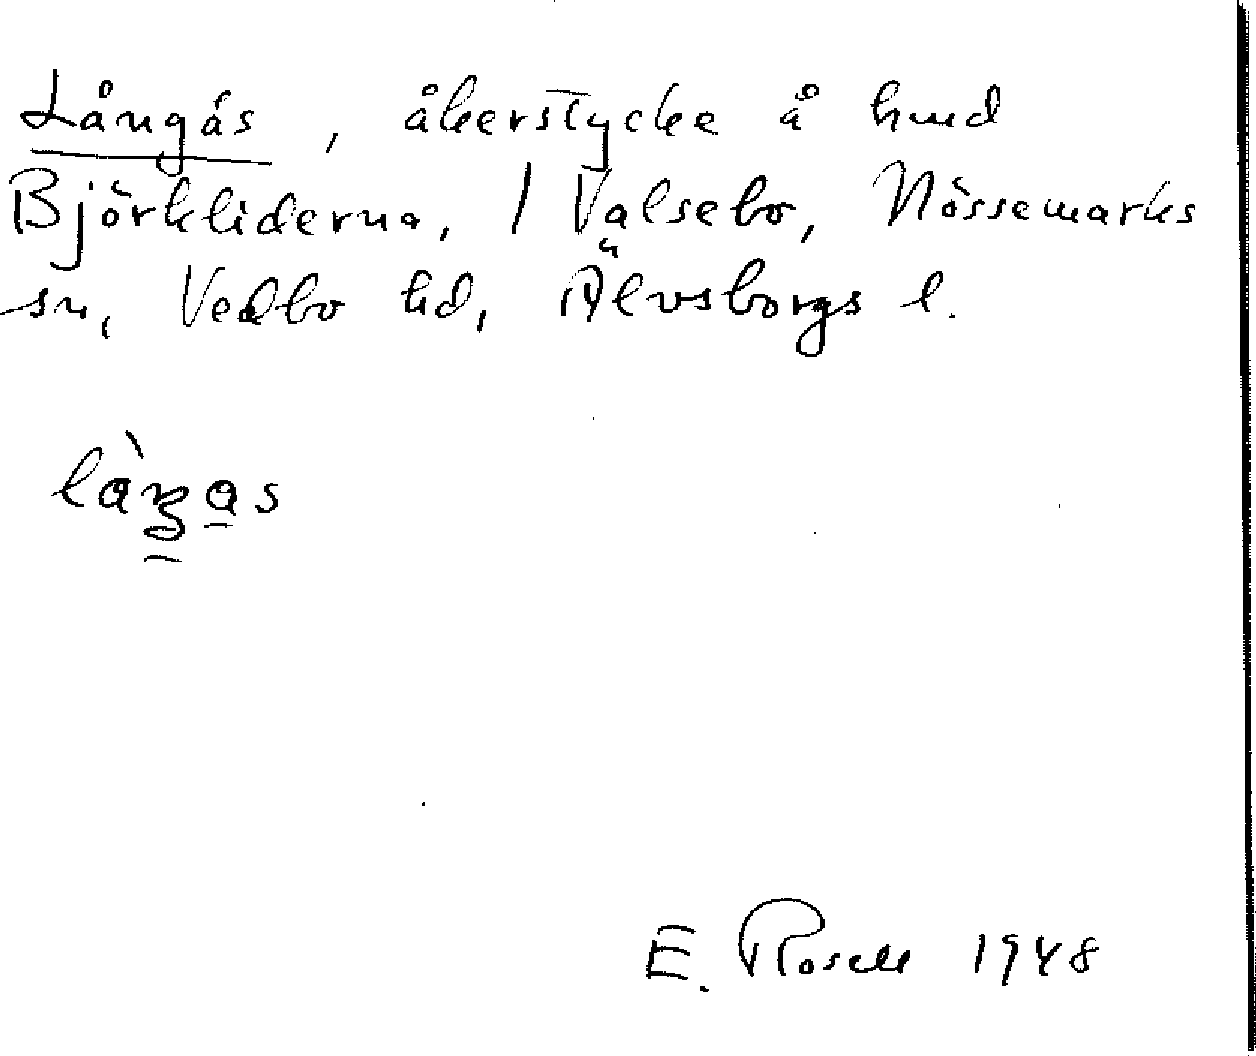 Långås, åkerstycke å hmd
Björkliderna, 1 Valsebo, Nössemarks
sn, Vedbo hd, Älvsborgs l.
E. Rosell 1948